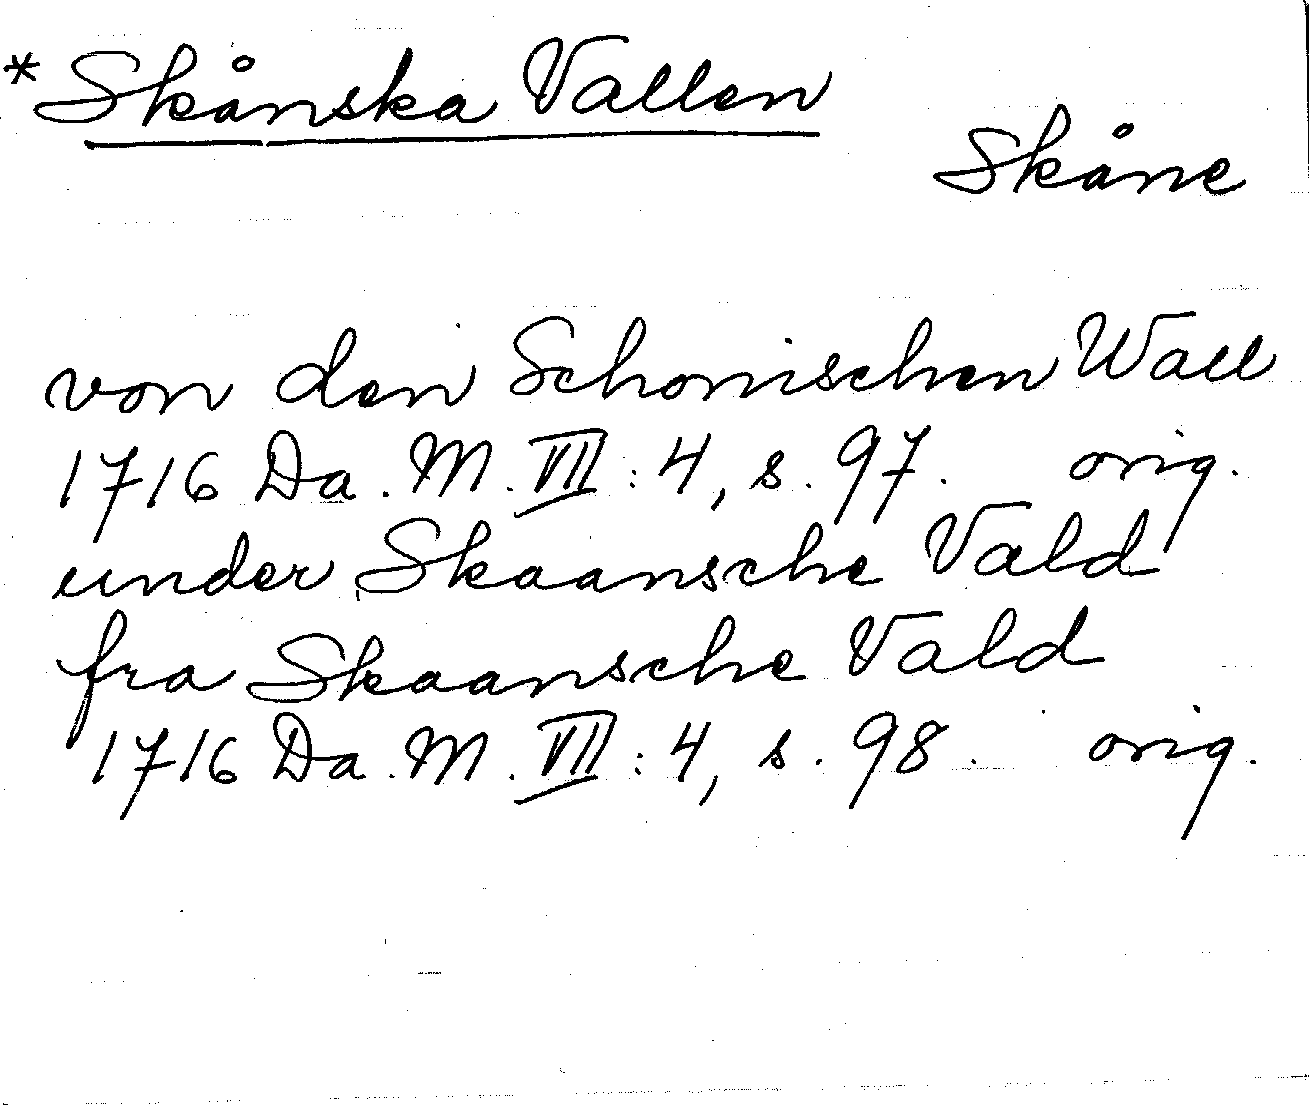 *Skånska Vallen
Skåne
von den Schonischen Wall
1716 Da. M. VII: 4, s. 97. orig.
under Skaansche Vald
fra Skaansche Vald
1716 Da. M. VII: 4, s. 98. orig.